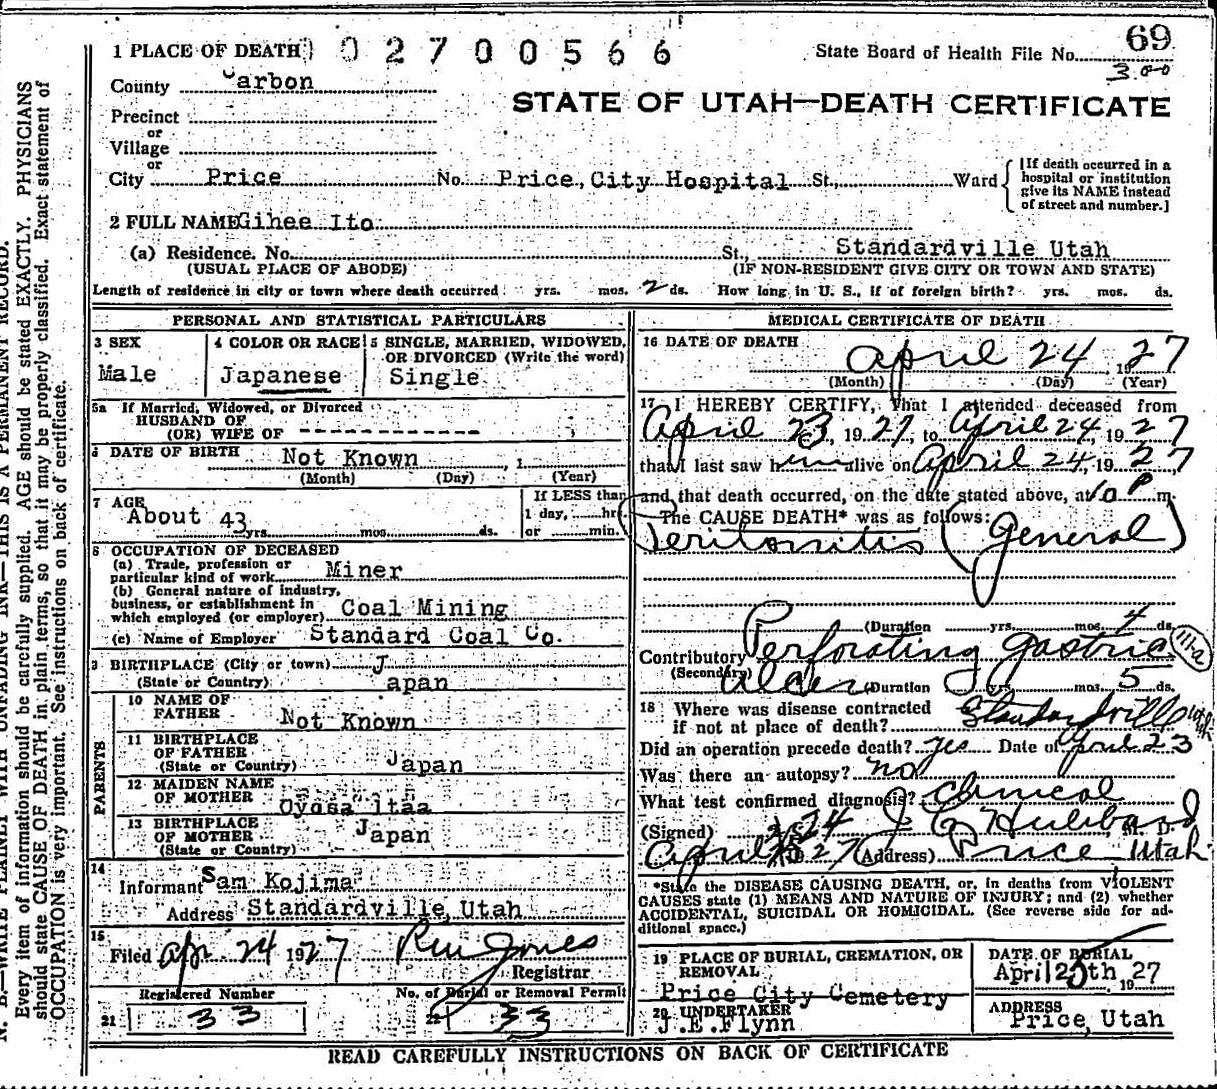 1 PLACE OF DEATH 02700566
State Board of Health File No. 69
300
County Carbon
STATE OF UTAH—DEATH CERTIFICATE
Precinct
or
Village
or
City Price No. Price City Hospital St., Ward
[If death occurred in a hospital or institution give its NAME instead of street and number.]
2 FULL NAME Gihee Ito
(a) Residence. No. St., Standardville Utah
(USUAL PLACE OF ABODE) (IF NON-RESIDENT GIVE CITY OR TOWN AND STATE)
Length of residence in city or town where death occurred yrs. mos. 2 ds. How long in U. S., if of foreign birth? yrs. mos. ds.
PERSONAL AND STATISTICAL PARTICULARS
3 SEX
Male
4 COLOR OR RACE
Japanese
5 SINGLE, MARRIED, WIDOWED, OR DIVORCED (Write the word)
Single
5a If Married, Widowed, or Divorced
HUSBAND OF
(OR) WIFE OF - - - - - - - - - - - - -
6 DATE OF BIRTH Not Known , 1
(Month) (Day) (Year)
7 AGE
About 43 yrs. mos. ds.
If LESS than
1 day, hrs.
or min.
8 OCCUPATION OF DECEASED
(a) Trade, profession or
particular kind of work Miner
(b) General nature of industry,
business, or establishment in
which employed (or employer) Coal Mining
(c) Name of Employer Standard Coal Co.
9 BIRTHPLACE (City or town)
(State or Country) Japan
PARENTS
10 NAME OF
FATHER Not Known
11 BIRTHPLACE
OF FATHER
(State or Country) Japan
12 MAIDEN NAME
OF MOTHER Oyosa Itaa
13 BIRTHPLACE
OF MOTHER
(State or Country) Japan
14
Informant Sam Kojima
Address Standardville, Utah
15
Filed Apr 24 1927 Jones
Registrar
Registered Number
21 33
No. of Burial or Removal Permit
22 33
MEDICAL CERTIFICATE OF DEATH
16 DATE OF DEATH
April 24, 1927
(Month) (Day) (Year)
17 I HEREBY CERTIFY, That I attended deceased from
April 23, 1927, to April 24, 1927
that I last saw him alive on April 24, 1927,
and that death occurred, on the date stated above, at 10 P m.
The CAUSE DEATH* was as follows:
Peritonitis (General)
(Duration yrs. mos. 4 ds.
Contributory Perforating Gastric
(Secondary) Ulcer (Duration yrs. mos. 5 ds.
111-a
18 Where was disease contracted
if not at place of death? Standardville Utah
Did an operation precede death? yes Date of April 23
Was there an autopsy? no
What test confirmed diagnosis? Clinical
(Signed) J C Hubbard M. D.
April 24 1927 (Address) Price Utah
*State the DISEASE CAUSING DEATH, or, in deaths from VIOLENT
CAUSES state (1) MEANS AND NATURE OF INJURY; and (2) whether
ACCIDENTAL, SUICIDAL OR HOMICIDAL. (See reverse side for ad-
ditional space.)
19 PLACE OF BURIAL, CREMATION, OR
REMOVAL
Price City Cemetery
DATE OF BURIAL
April 25th 1927
20 UNDERTAKER
J.E.Flynn
ADDRESS
Price, Utah
READ CAREFULLY INSTRUCTIONS ON BACK OF CERTIFICATE
N. B.—WRITE PLAINLY WITH UNFADING INK—THIS IS A PERMANENT RECORD.
Every item of information should be carefully supplied. AGE should be stated EXACTLY. PHYSICIANS
should state CAUSE OF DEATH in plain terms, so that it may be properly classified. Exact statement of
OCCUPATION is very important. See instructions on back of certificate.